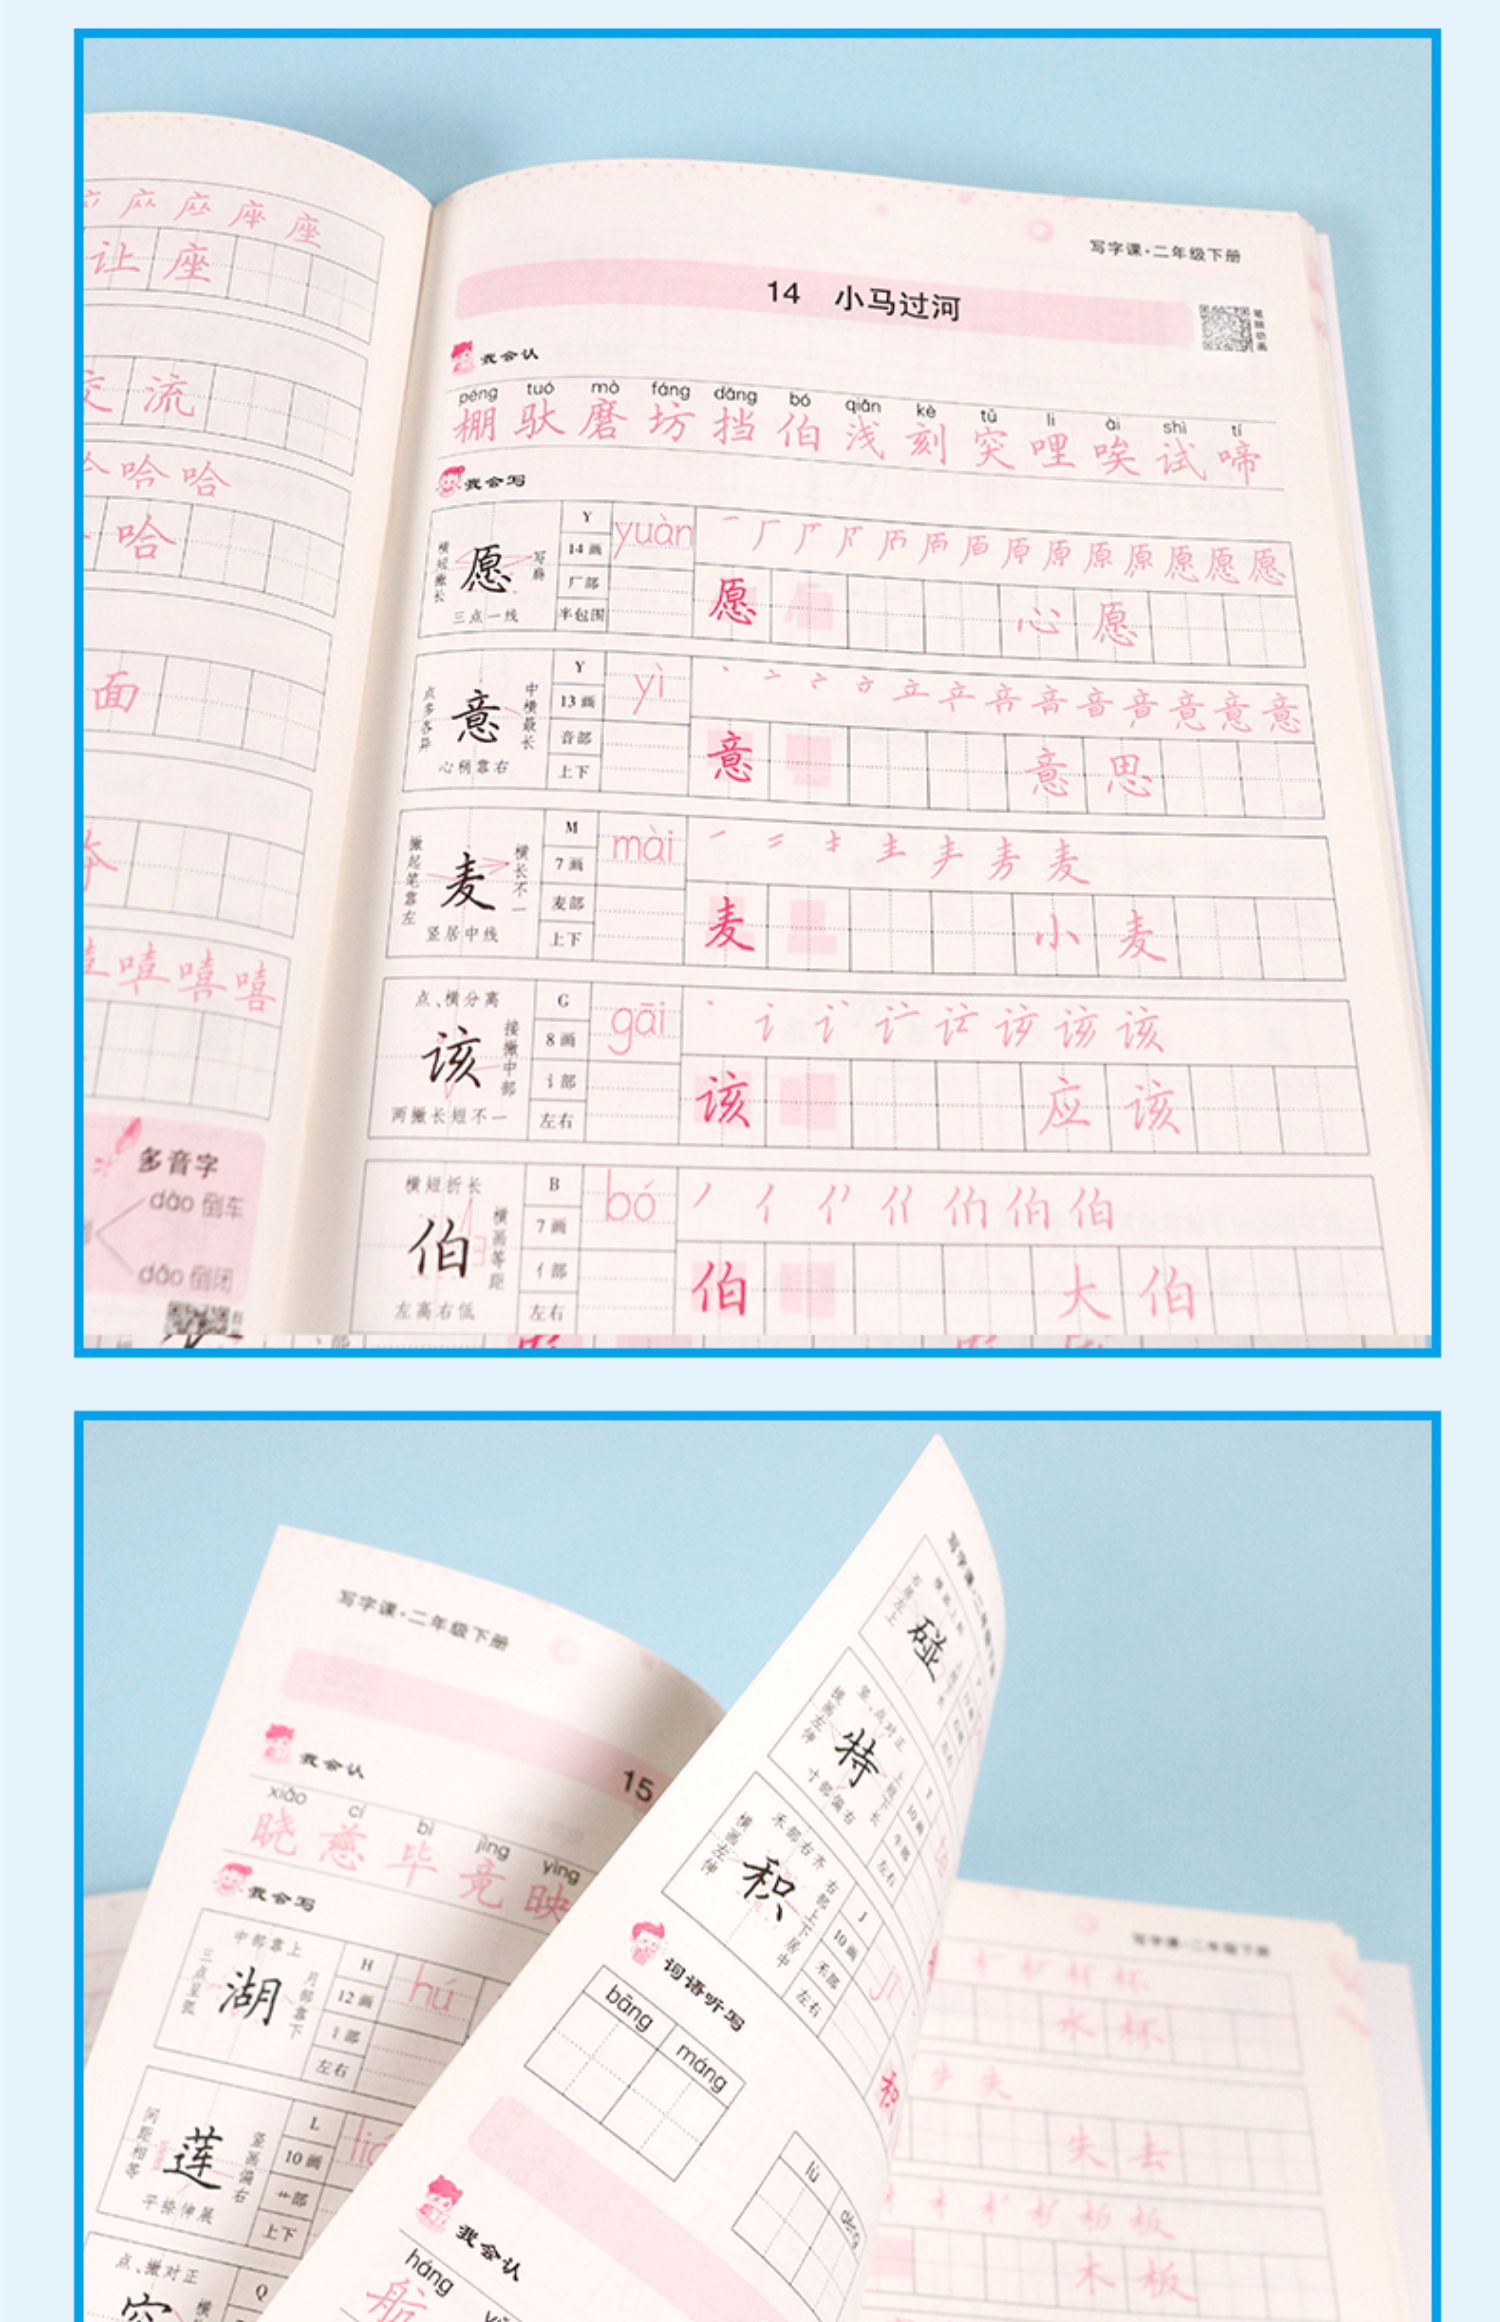 座
让座
交流
哈哈
哈
面
嘻
多音字
dào 倒车
dǎo 倒闭
写字课·二年级下册
14 小马过河
我会认
péng tuó mò fáng dǎng bó qiǎn kè tū li āi shì tí
棚驮磨坊挡伯浅刻突哩唉试啼
我会写
愿
横短撇长
写扁
三点一线
Y
14画
厂部
半包围
yuàn
愿
愿 心愿
意
点多各异
中横最长
心稍靠右
Y
13画
音部
上下
yì
意
意 意思
麦
撇起笔靠左
横长不一
竖居中线
M
7画
麦部
上下
mài
麦
麦 小麦
点、横分离
该
接撇中部
两撇长短不一
G
8画
讠部
左右
gāi
该
该 应该
横短折长
伯
横画等距
左高右低
B
7画
亻部
左右
bó
伯
伯 大伯
写字课·二年级下册
15
我会认
xiǎo cí bì jìng yìng
晓慈毕竟映
我会写
中部靠上
三点呈弧
湖
月部靠下
H
12画
氵部
左右
hú
间距相等
莲
竖画偏右
平捺伸展
L
10画
艹部
上下
点、撇对正
Q
碰
竖、点对正
提画左伸
特
上短下长
寸部偏右
T
10画
牛部
左右
禾部右齐
横画左伸
积
右部上下居中
J
10画
禾部
左右
jī
积
词语听写
bāng máng
lù
我会认
háng
航
写字课·二年级下册
杯
水杯
失
失去
板
木板